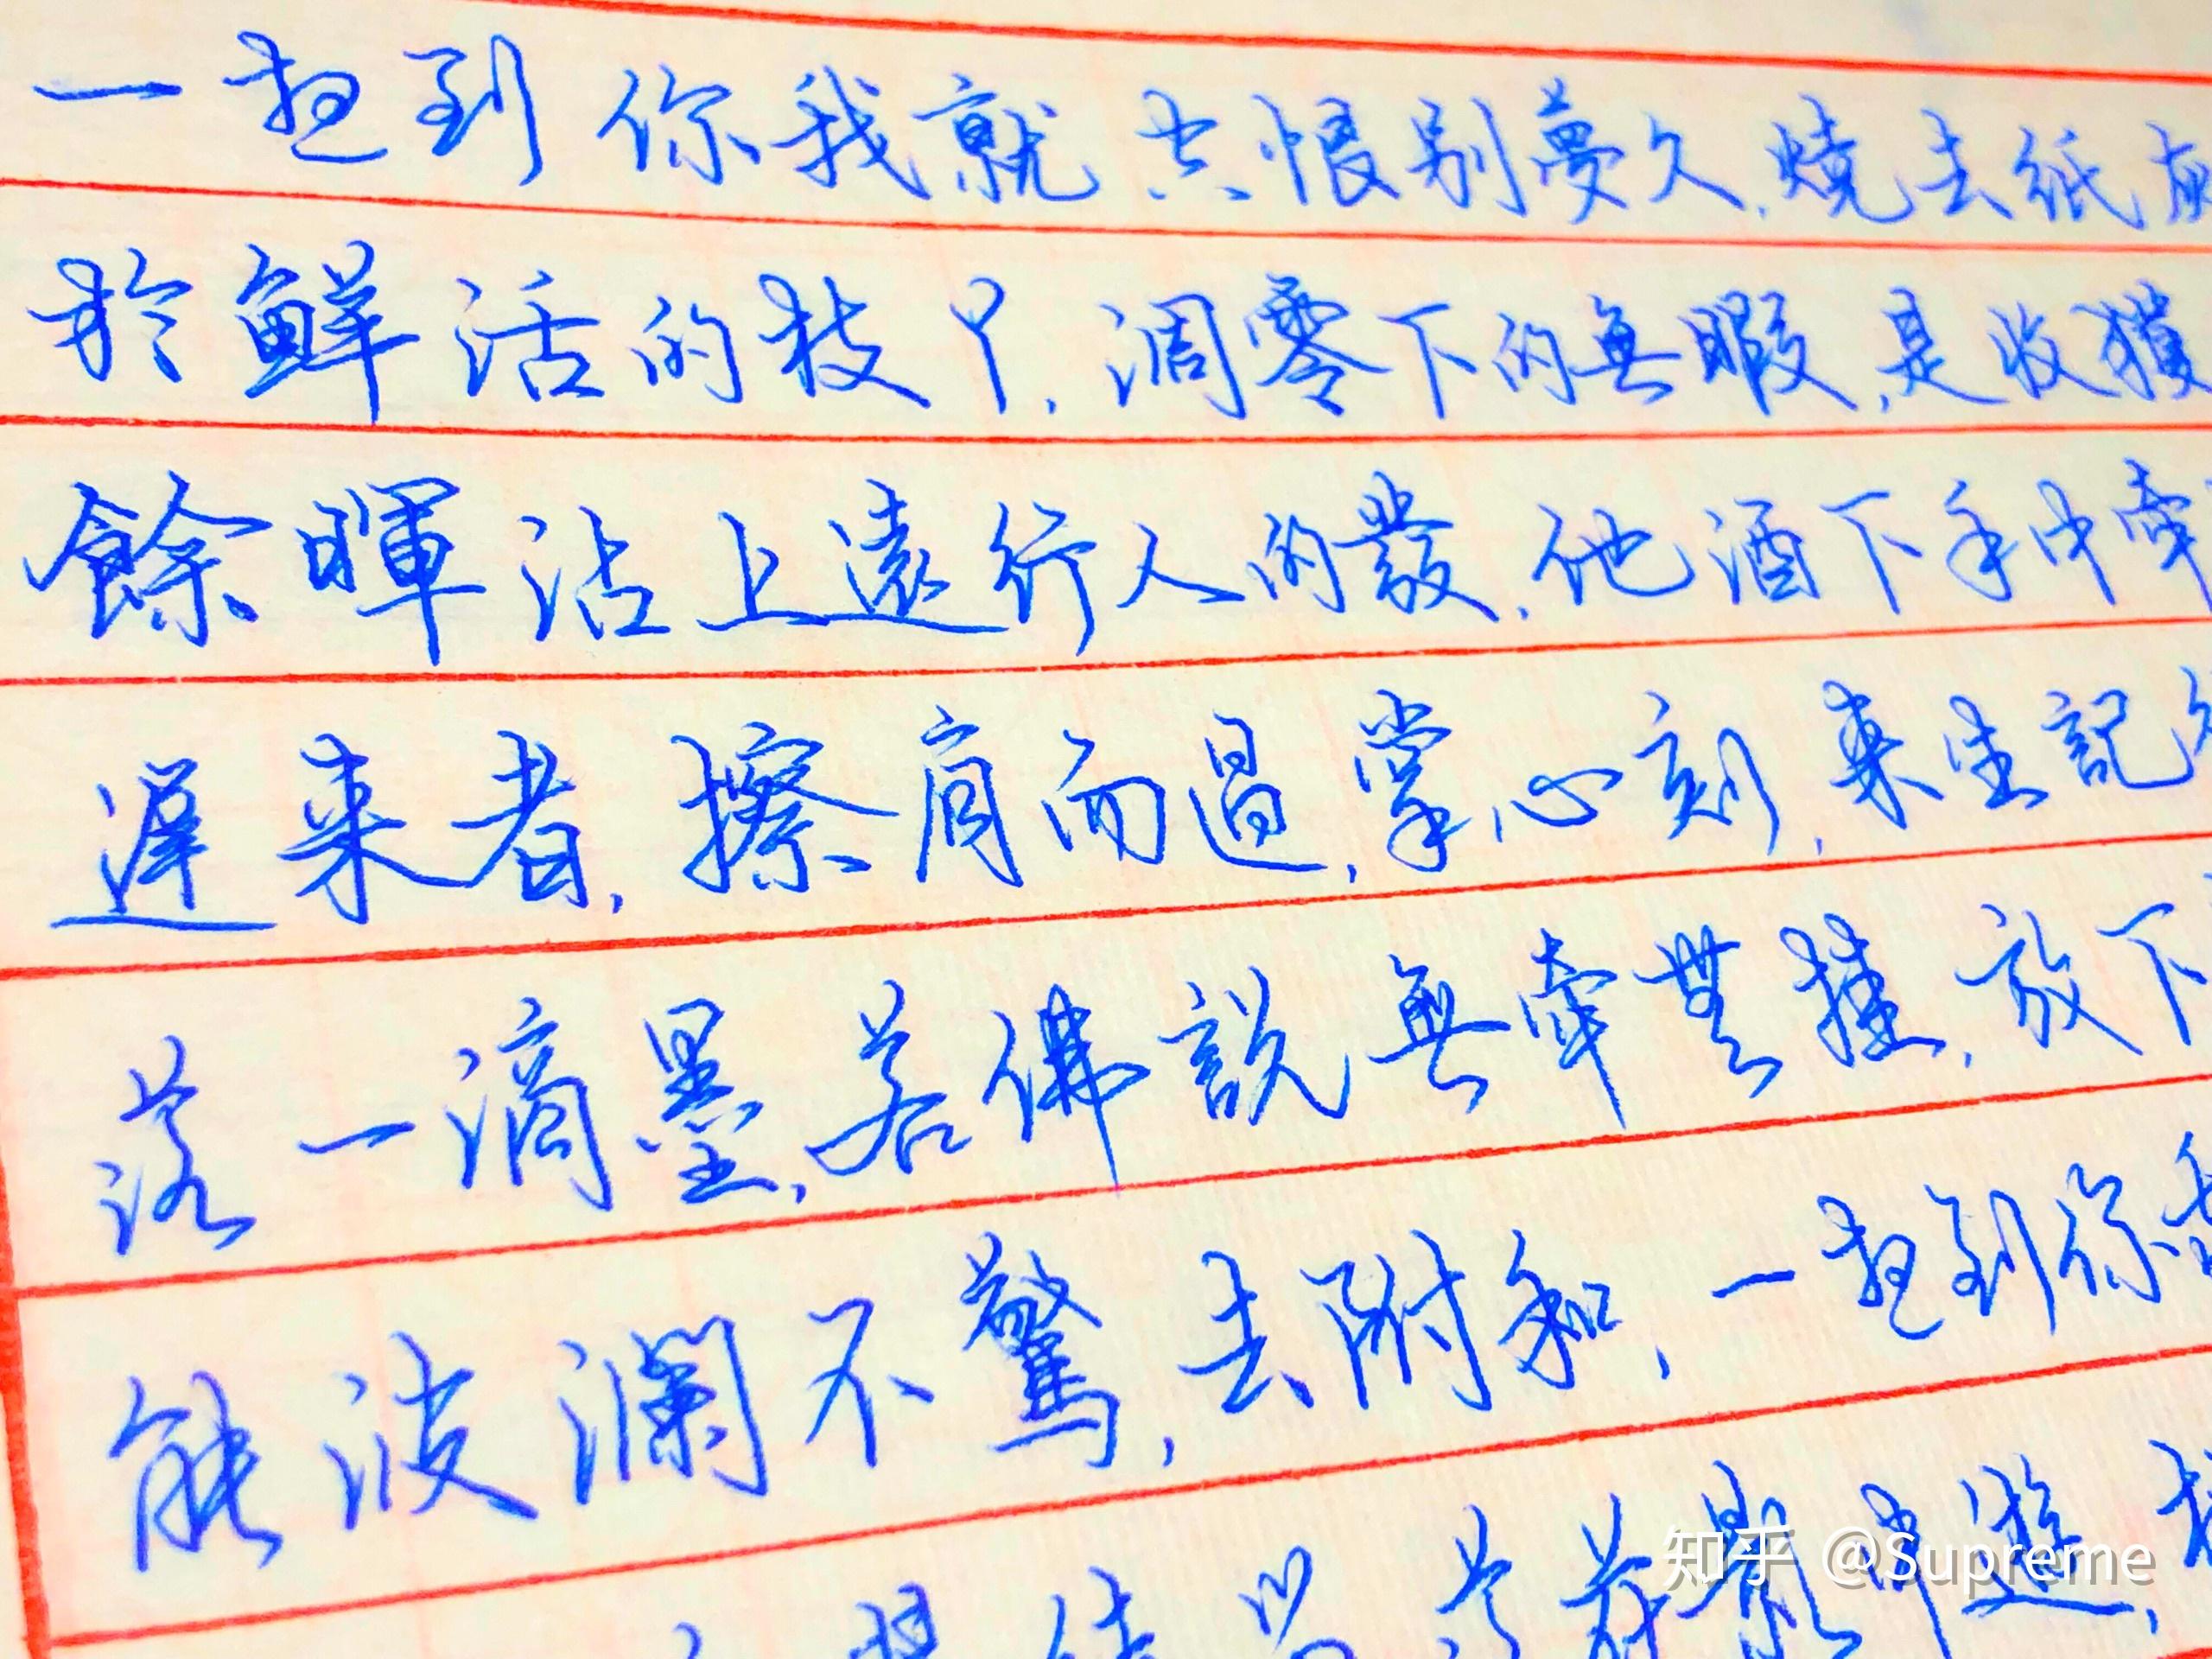 一想到你我就 共恨别夢久,燒去紙灰
於鮮活的枝丫,凋零下的無暇,是收獲
餘暉沾上遠行人的發,他洒下手中牽
遲来者,擦肩而過,掌心刻,来生記
落一滴墨,若佛説無牽無掛,放下
能波瀾不驚,去附和,一想到你
知乎 @Supreme